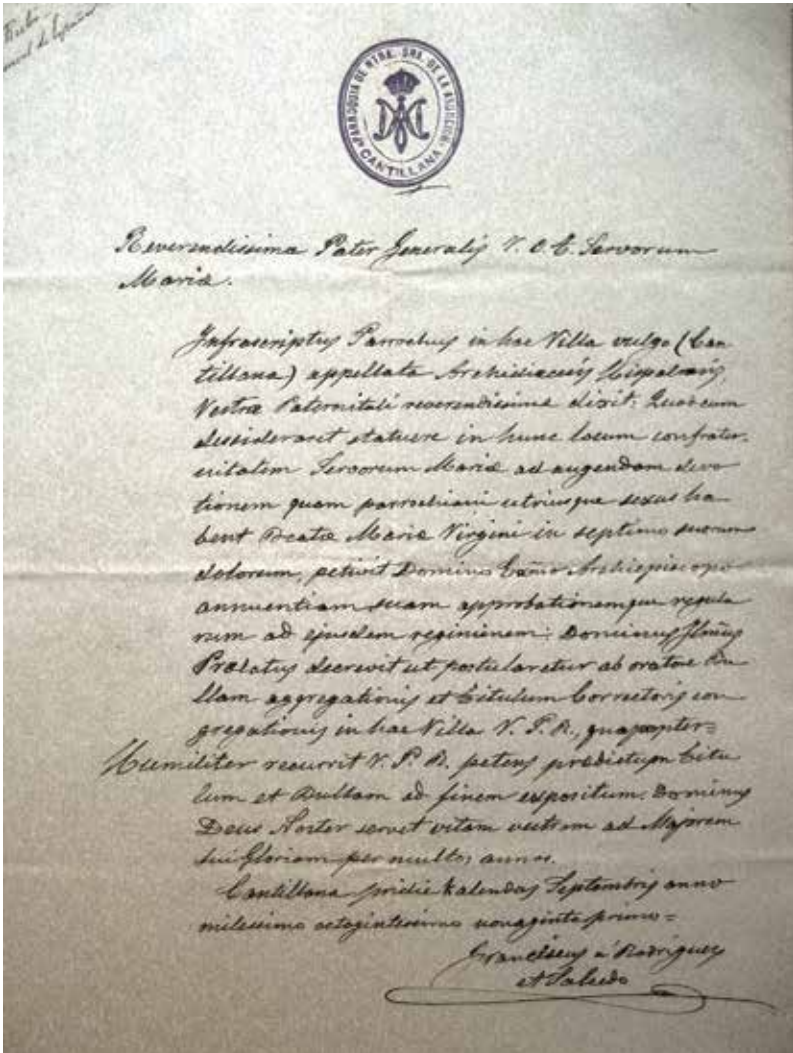 PARROQUIA DE NTRA. SRA. DE LA ASUNCION
CANTILLANA
Reverendissima Pater Generalis V. O. T. Servorum
Mariæ.
Infrascriptus Parrochus in hac Villa vulgo (Can
tillana) appellata Archidiecesis Hispalensis,
Vestræ Paternitati reverendissimæ dixit: Quod cum
dessideraret statuere in hunc locum confrater-
nitatem Servorum Mariæ ad augendam devo
tionem quam parrochiani utriusque sexus ha
bent Beatæ Mariæ Virgini in septimo suorum
dolorum, petivit Dominus Archiepiscopo
annuentiam suam approbationemque regula
rum ad ejusdem reginienem: Dominus Illmus
Prælatus decrevit ut postularetur ab oratore Bu
llam aggregationis et Titulum Correctoris con
gregationis in hac Villa V. P. R., quapropter=
Humiliter recurrit V. P. R. petens prædictum titu
lum et Bullam ad finem expositum. Dominus
Deus Noster servet vitam vestram ad Majorem
sui Gloriam per multos annos.
Cantillana pridie Kalendas Septembris anno
milessimo octogintessimo nonaginta primo=
Franciscus a Rodriguez
et Salcedo